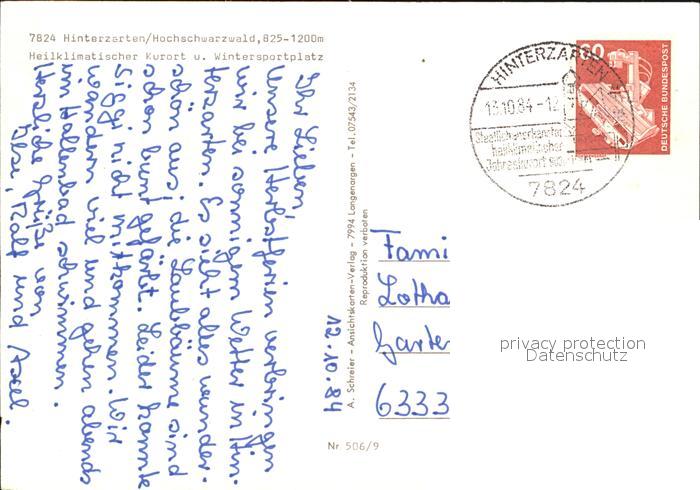 7824 Hinterzarten/Hochschwarzwald, 825-1200m
Heilklimatischer Kurort u. Wintersportplatz
12.10.84
Ihr Lieben,
Unsere Herbstferien verbringen
wir bei sonnigem Wetter in Hin-
terzarten. Es sieht alles wunder-
schön aus; die Laubbäume sind
schon bunt gefärbt. Leider konnte
Siggi nicht mitkommen. Wir
wandern viel und gehen abends
im Hallenbad schwimmen.
Herzliche Grüße von
Ilse, Ralf und Axel.
A. Schreier - Ansichtskarten-Verlag - 7994 Langenargen - Tel. 07543/2134
Reproduktion verboten
Nr. 506/9
HINTERZARTEN
13.10.84-12
Staatlich anerkannter
heilklimatischer
Jahreskurort
7824
DEUTSCHE BUNDESPOST
Fami
Lotha
Garte
6333
privacy protection
Datenschutz